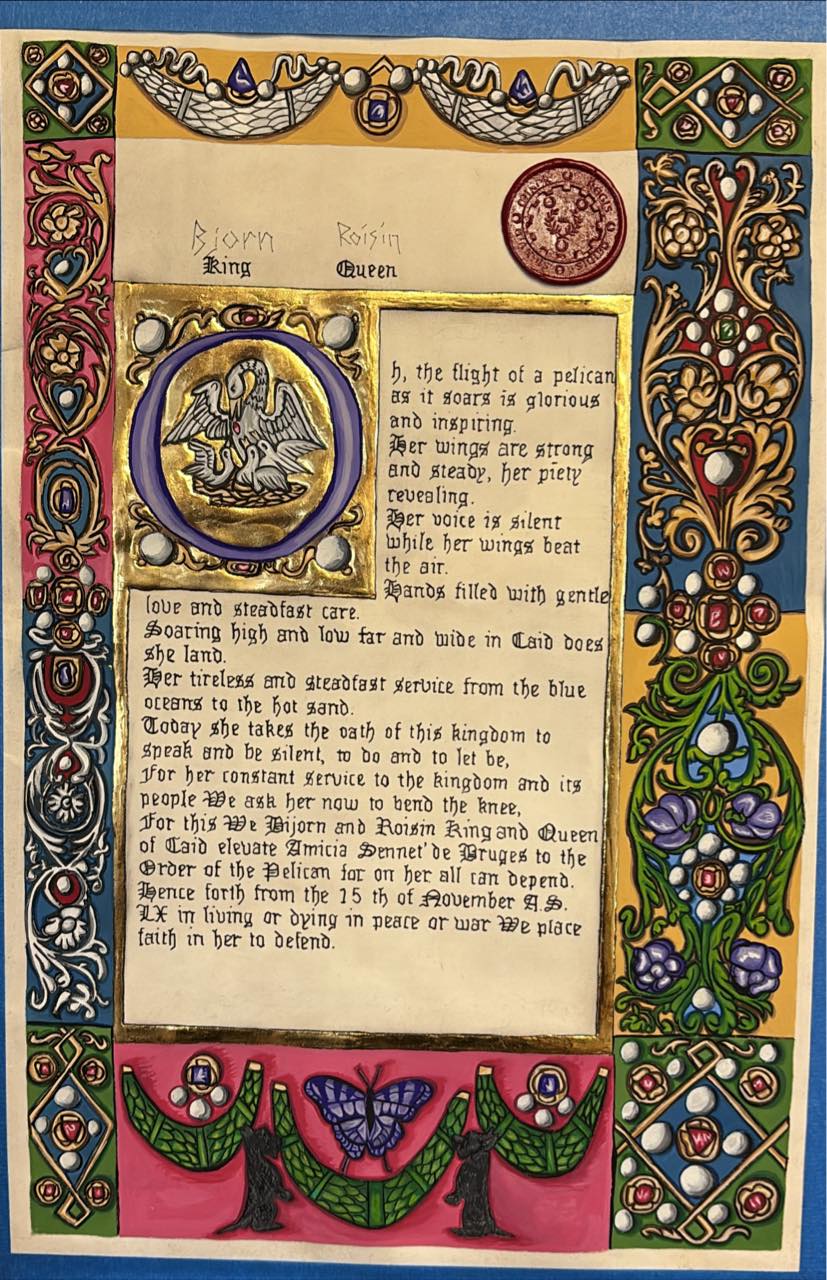 Bjorn Roisin
King Queen
Oh, the flight of a pelican
as it soars is glorious
and inspiring.
Her wings are strong
and steady, her piety
revealing.
Her voice is silent
while her wings beat
the air.
Hands filled with gentle
love and steadfast care.
Soaring high and low far and wide in Caid does
she land.
Her tireless and steadfast service from the blue
oceans to the hot sand.
Today she takes the oath of this kingdom to
speak and be silent, to do and to let be,
For her constant service to the kingdom and its
people We ask her now to bend the knee,
For this We Bijorn and Roisin King and Queen
of Caid elevate Amicia Sennet' de Bruges to the
Order of the Pelican for on her all can depend.
Hence forth from the 15 th of November A.S.
LX in living or dying in peace or war We place
faith in her to defend.